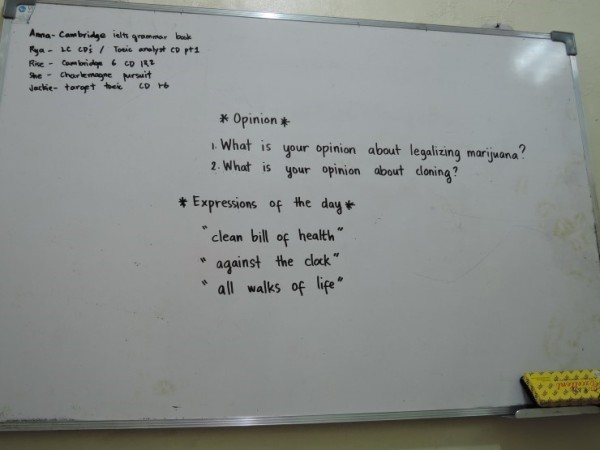 Anna- Cambridge ielts grammar book
Rya - LC CD's / Toeic analyst CD pt1
Rise - Cambridge 6 CD 1&2
She - Charlemagne pursuit
Jackie- target toeic CD 1-6
* Opinion *
1. What is your opinion about legalizing marijuana?
2. What is your opinion about cloning?
* Expressions of the day *
"clean bill of health"
"against the clock"
"all walks of life"